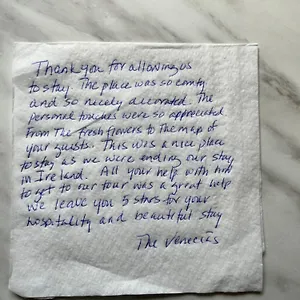 Thank you for allowing us
to stay. The place was so comfy
and so nicely decorated. The
personal touches were so appreciated
from the fresh flowers to the map of
your guests. This was a nice place
to stay as we were ending our stay
in Ireland. All your help with how
to get to our tour was a great help
we leave you 5 stars for your
hospitality and beautiful stay
The Venecias